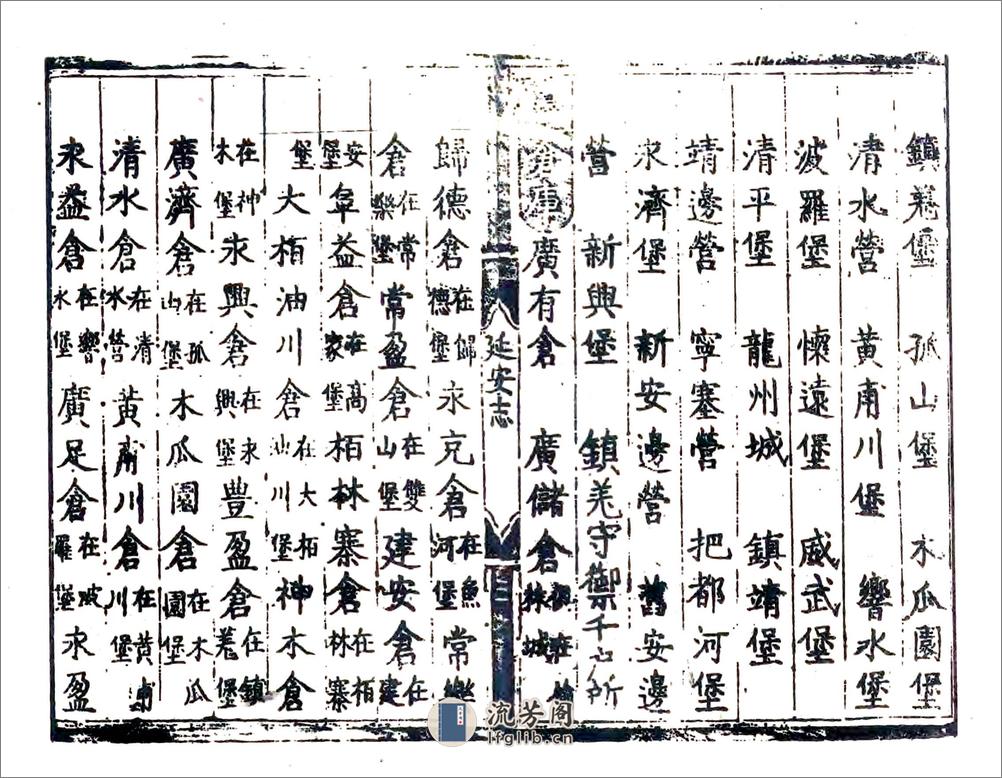 鎮羗堡 孤山堡 木瓜園堡
清水營 黃甫川堡 響水堡
波羅堡 懷遠堡 威武堡
清平堡 龍州城 鎮靖堡
靖邊營 寧塞營 把都河堡
永濟堡 新安邊營 舊安邊
營 新興堡 鎮羌守禦千户所
倉庫 廣有倉 廣儲倉俱在榆林城
延安志
歸德倉在歸德堡永克倉在魚河堡常樂
倉在常樂堡常盈倉在雙山堡建安倉在建
安堡阜益倉在高家堡栢林寨倉在栢林寨
堡大栢油川倉在大栢山川堡神木倉
在神木堡永興倉在永興堡豊盈倉在鎮羗堡
廣濟倉在孤山堡木瓜園倉在木瓜園堡
清水倉在清水營黃甫川倉在黃浦川堡
永益倉在響水堡廣足倉在波羅堡永盈
流芳阁
lfglib.cn